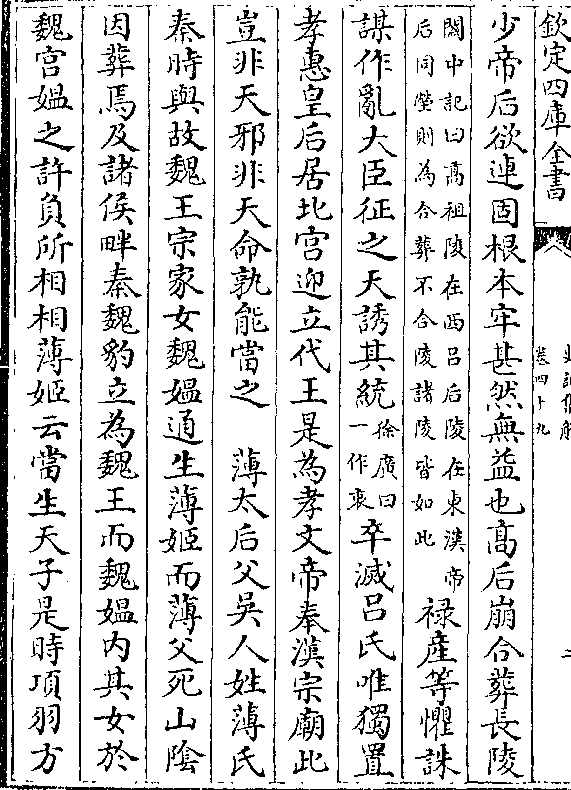 欽定四庫全書
史記集解
卷四十九
二
少帝后欲連固根本牢甚然無益也高后崩合葬長陵
關中記曰高祖陵在西呂后陵在東漢帝
后同塋則為合葬不合陵諸陵皆如此
祿產等懼誅
謀作亂大臣征之天誘其統
徐廣曰
一作衷
卒滅呂氏唯獨置
孝惠皇后居北宮迎立代王是為孝文帝奉漢宗廟此
豈非天邪非天命孰能當之
薄太后父吳人姓薄氏
秦時與故魏王宗家女魏媼通生薄姬而薄父死山陰
因葬焉及諸侯畔秦魏豹立為魏王而魏媼內其女於
魏宮媼之許負所相相薄姬云當生天子是時項羽方